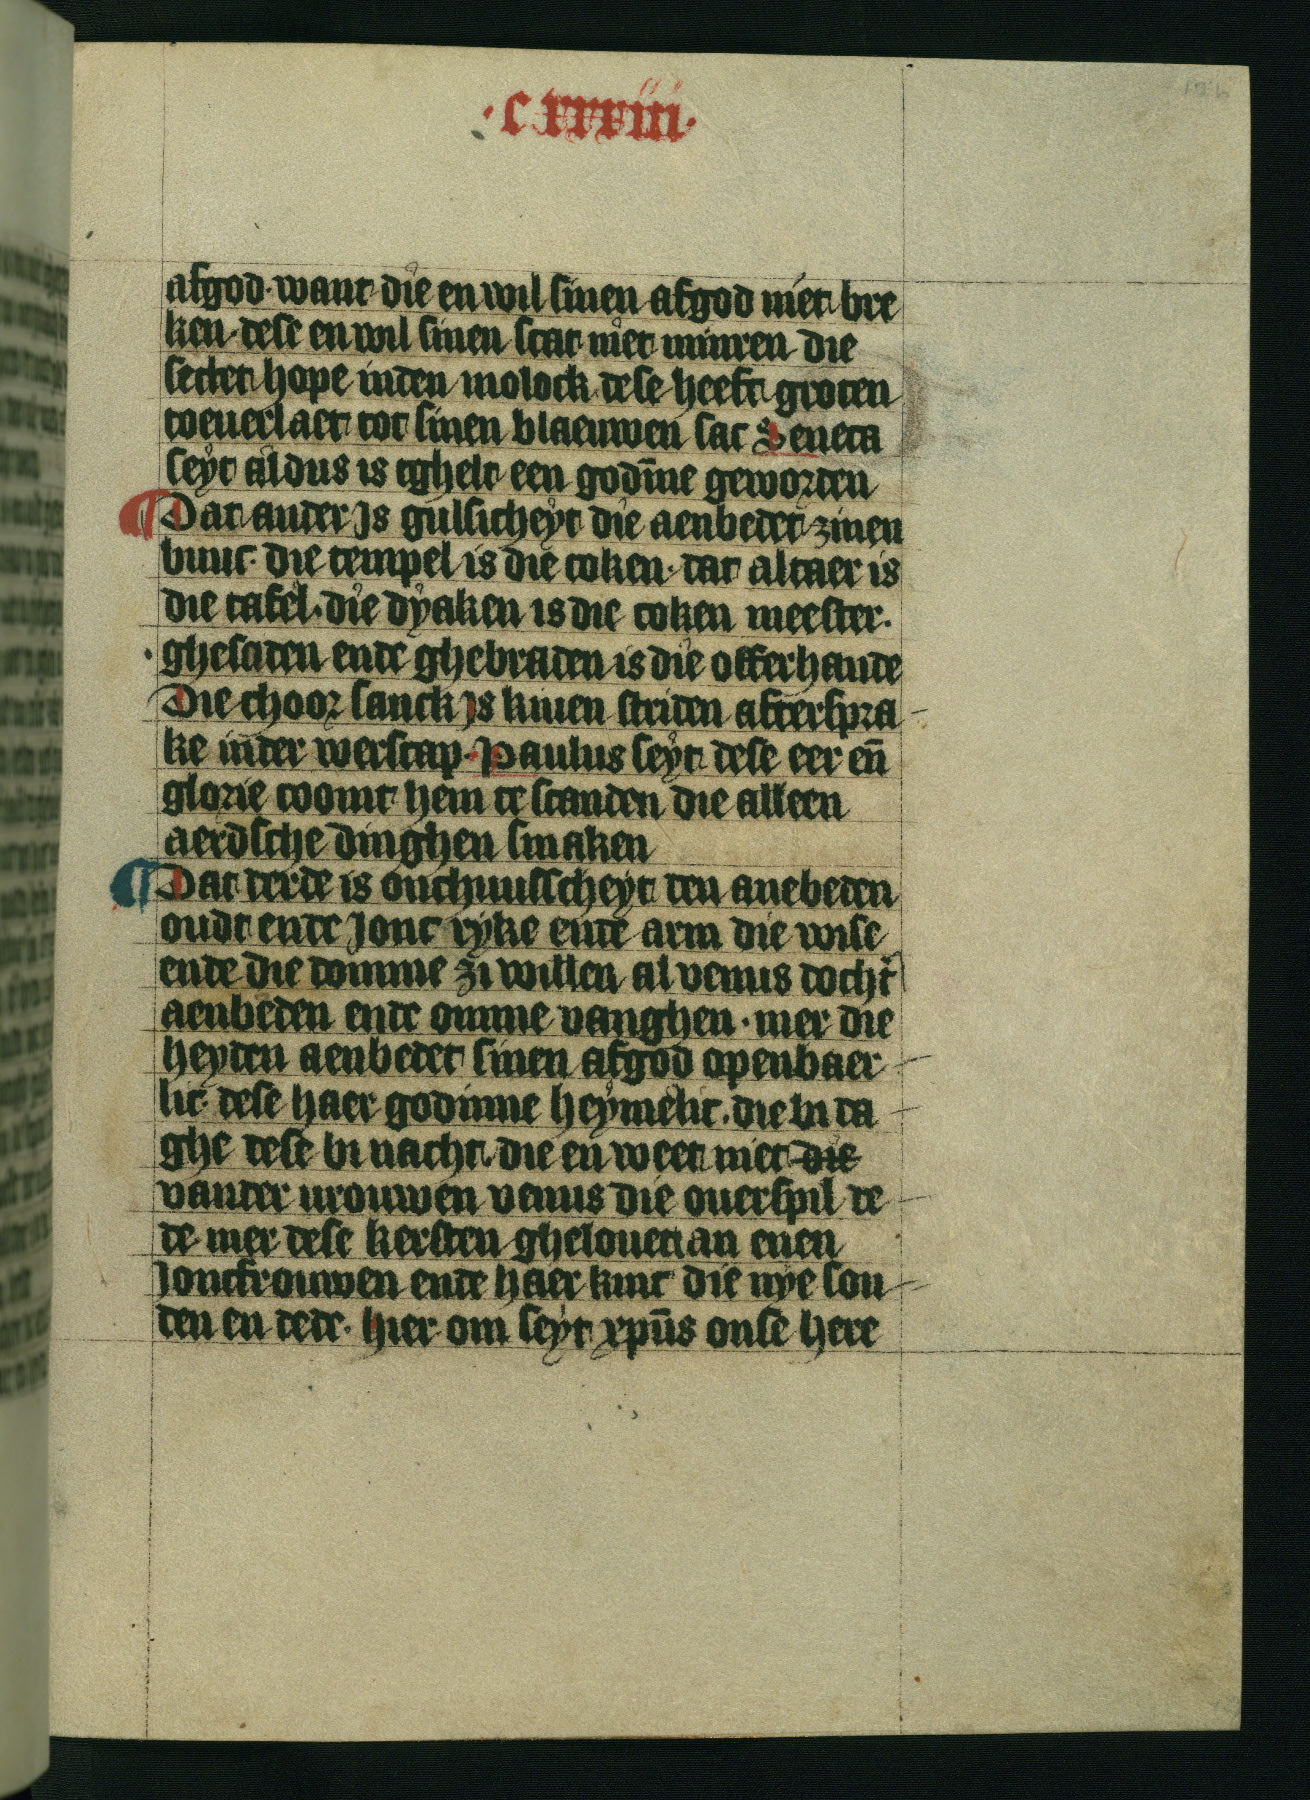 ·C xxxiii·
afgod· want die en wil sinen afgod niet bre
ken· dese en wil sinen scat niet minren die
settet hope inden molock dese heeft groten
toeuerlaet tot sinen blaeuwen sac Seneca
seyt aldus is tghelt een godīne geworden
¶ Dat ander Js gulsicheyt die aenbedet zinen
buuc· die tempel is die coken· dat altaer is
die tafel· die dyaken is die coken meester·
ghesoden ende ghebraden is die offerhande
Die choor sanck Js kiuen striden afterspra
ke inder werscap· Paulus seyt dese eer en̄
glorie coomt hem te scanden die alleen
aerdsche dinghen smaken
¶ Dat derde is onchuusscheyt den anebeden
oudt ende Jonc ryke ende arm die wise
ende die domme zi willen al venus docht̾
aenbeden ende omme vanghen· mer die
heyden aenbedet sinen afgod openbaer
lic dese haer godinne heymelic· die bi da
ghe dese bi nacht· die en weet niet die
vander urouwen venus die ouerspil de
de mer dese kersten ghelouen an enen
Joncfrouwen ende haer kint die nye son
den en dede· hier om seyt xpūs onse here